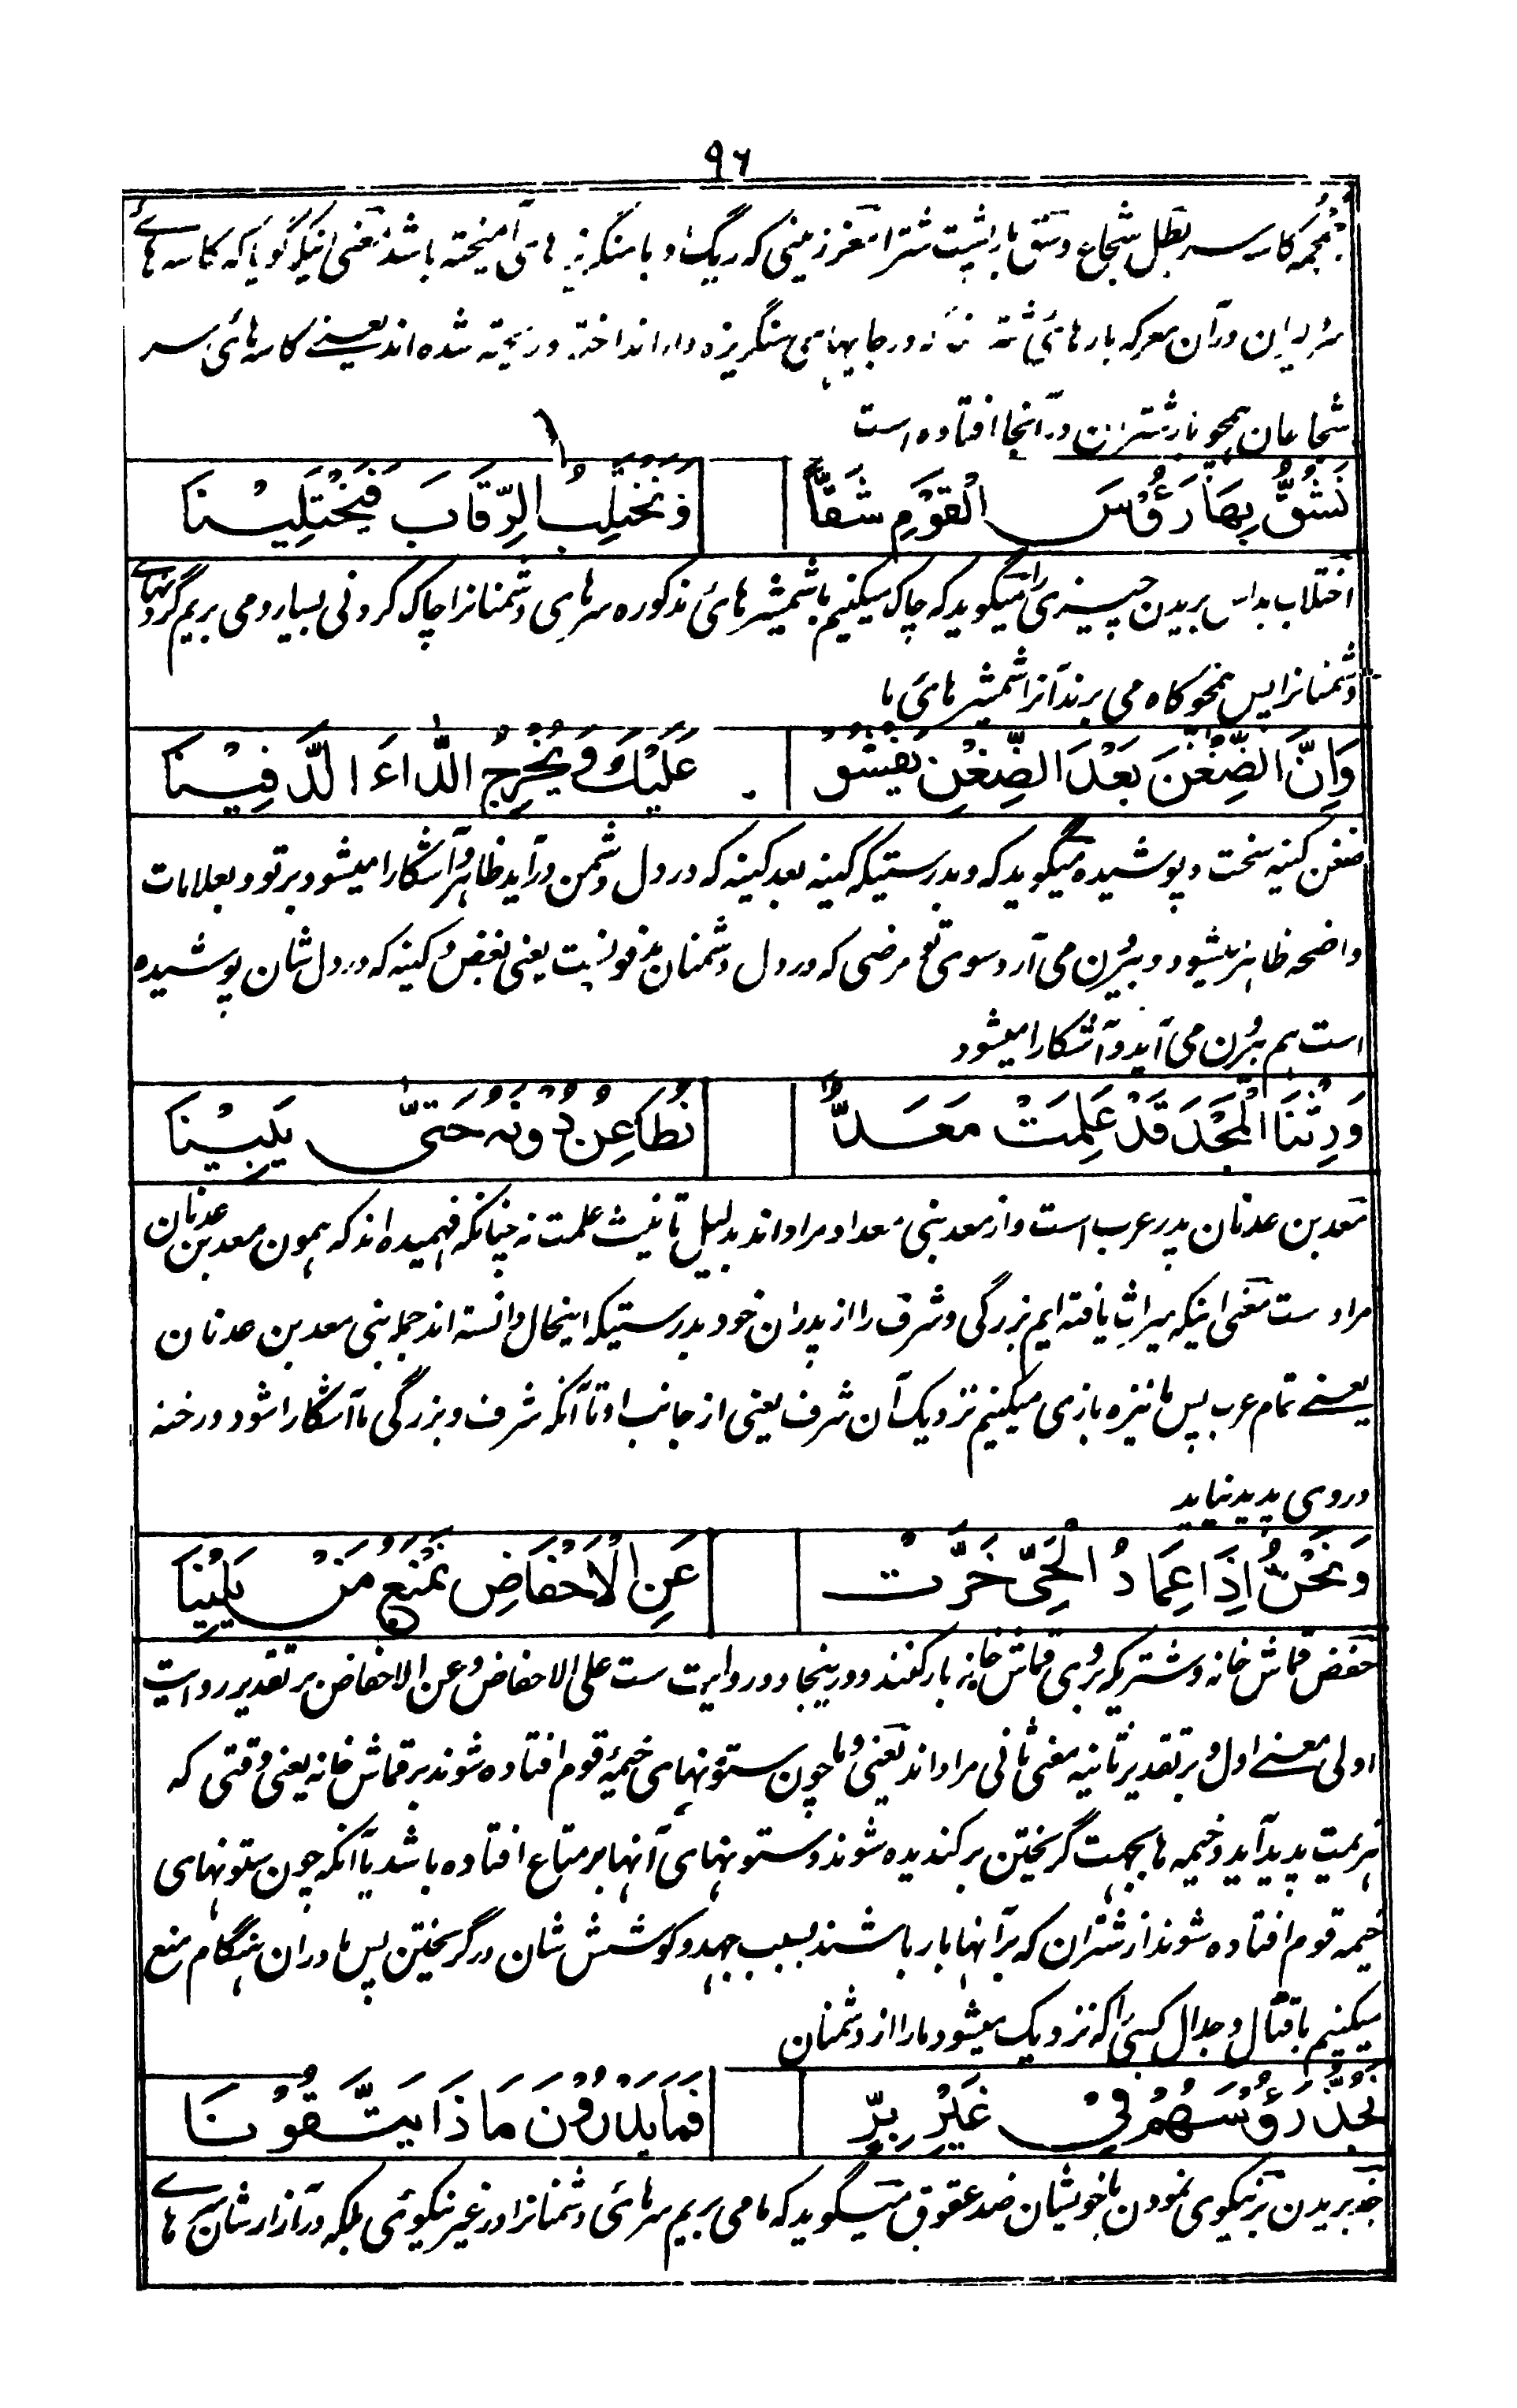 ٩٦
جمجمه کاسه سر بطل شجاع وسق بار پشت شتر امعز زمینی که ریگ او با سنگریزه های آمیخته باشد معنی اینکه گویا که کاسه هائے
دران معرکه بارهای در جایهای سنگریزه دار انداخته و ریخته شده اند یعنے کاسه هائ سر
شجاعان همچو بار شتر درآنجا افتاده است
نَشُقُّ بِهَا رَؤُسَ الْقَوْمِ شَقًّا وَنَخْتَلِبُ الرِّقَابَ فَيَخْتَلِيْنَا
اختلاب بداس بریدن چیزی را میگوید که چاک میکنیم با شمشیرهائ مذکوره سرهای دشمنانرا چاک کردنی بسیار و می بریم گردنهائے
دشمنانرا پس همچو کاه می برند آنرا شمشیرهائ ما
وَاِنَّ الضِّغْنَ بَعْدَ الضِّغْنِ يَفْشُوْ عَلَيْكَ وَيُخْرِجُ الدَّاءَ الدَّفِيْنَا
ضغن کینه سخت و پوشیده میگوید که و بدرستیکه کینه بعد کینه که در دل دشمن درآید ظاهر و آشکارا میشود بر تو و بعلامات
واضحه ظاهر میشود و بیرون می آرد سوی تو مرضی که در دل دشمنان مدفونست یعنی بغض و کینه که در دل شان پوشیده
است هم بیرون می آید و آشکارا میشود
وَرِثْنَا الْمَجْدَ قَدْ عَلِمَتْ مَعَدٌّ نُطَاعِنُ دُوْنَهُ حَتّٰى يَبِيْنَا
معد بن عدنان پدر عرب است و از معد بنی معد او مراد اند بدلیل تانیث علمت نه چنانکه فهمیده اند که همون معد بن عدنان
مراد ست معنی اینکه میراث یافته ایم بزرگی و شرف را از پدران خود بدرستیکه اینحال دانسته اند جمله بنی معد بن عدنان
یعنے تمام عرب پس ما نیزه بازی میکنیم نزدیک آن شرف یعنی از جانب او تا آنکه شرف و بزرگی ما آشکارا شود و رخنه
در وی پدید نیاید
وَنَحْنُ اِذَا عِمَادُ الْحَيِّ خَرَّتْ عَنِ الْاَحْفَاضِ نَمْنَعُ مَنْ يَلِيْنَا
حفض قماش خانه و شتریکه بروی قماش خانه بار کنند و درینجا دو روایت ست علی الاحفاض و عن الاحفاض بر تقدیر روایت
اولی معنے اول و بر تقدیر ثانیه معنی ثانی مراد اند یعنی و ما چون ستونهای خیمهٔ قوم افتاده شوند بر قماش خانه یعنی وقتی که
هزیمت پدید آید و خیمه ها بجهت گریختن برکندیده شوند و ستونهای آنها بر متاع افتاده باشد یا آنکه چون ستونهای
خیمه قوم افتاده شوند از شتران که بر آنها بار باشند بسبب جهد و کوشش شان در گریختن پس ما دران هنگام منع
میکنیم با قتال و جدال کسی را که نزدیک میشود ما را از دشمنان
نَجُذُّ رَؤُسَهُمْ فِيْ غَيْرِ بِرٍّ فَمَا يَدْرُوْنَ مَاذَا يَتَّقُوْنَا
جذ بریدن بر نیکوی نمودن با خویشان ضد عقوق میگوید که ما می بریم سرهائ دشمنانرا در غیر نیکوئی بلکه در آزار شان ها